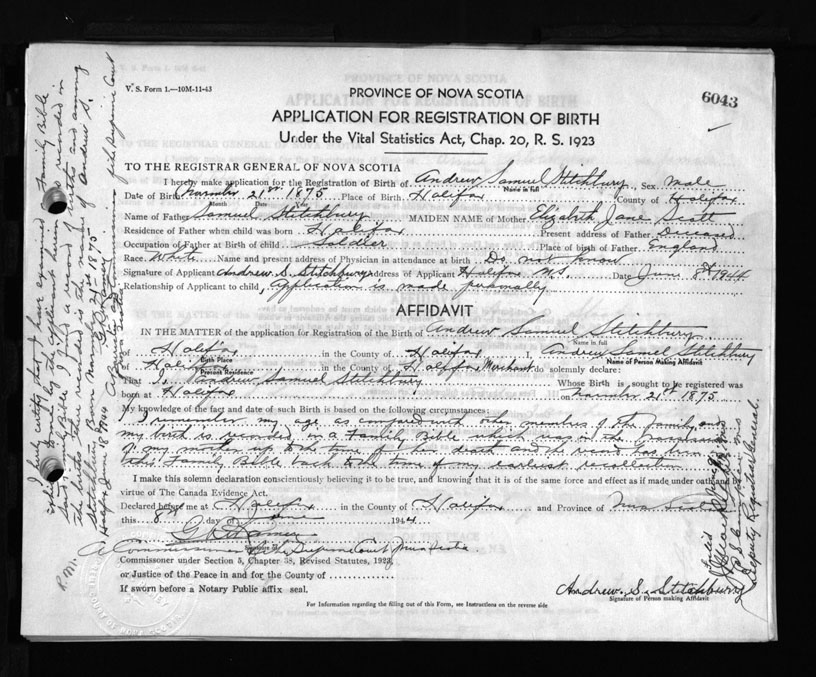 V. S. Form 1.—10M-11-43
6043
PROVINCE OF NOVA SCOTIA
APPLICATION FOR REGISTRATION OF BIRTH
Under the Vital Statistics Act, Chap. 20, R. S. 1923
TO THE REGISTRAR GENERAL OF NOVA SCOTIA
I hereby make application for the Registration of Birth of Andrew Samuel Stitchbury, Sex male
Name in full
Date of Birth 21st 1875 Place of Birth Halifax County of Halifax
Month Day Year
Name of Father Samuel Stitchbury MAIDEN NAME of Mother Elizabeth Jane Scott
Residence of Father when child was born Halifax Present address of Father Deceased
Occupation of Father at Birth of child Soldier Place of Birth of Father England
Race White Name and present address of Physician in attendance at birth Do not know
Signature of Applicant Andrew S. Stitchbury Address of Applicant Halifax N.S. Date June 8th 1944
Relationship of Applicant to child, application is made personally
AFFIDAVIT
IN THE MATTER of the application for Registration of the Birth of Andrew Samuel Stitchbury
Name in full
of Halifax in the County of Halifax I, Andrew Samuel Stitchbury
Birth Place Name of Person Making Affidavit
of Halifax in the County of Halifax Merchant do solemnly declare:
Present Residence
That I, Andrew Samuel Stitchbury Whose Birth is sought to be registered was
born at Halifax on 21st 1875
My knowledge of the fact and date of such Birth is based on the following circumstances:
I remember my age as compared with other members of the family and
my birth is recorded in a Family Bible which was in the possession
of my mother up to the time of her death and the record has been in
this Family Bible back to the time of my earliest recollection
I make this solemn declaration conscientiously believing it to be true, and knowing that it is of the same force and effect as if made under oath and by
virtue of The Canada Evidence Act.
Declared before me at Halifax in the County of Halifax and Province of Nova Scotia
this 8th day of June 1944
A Commissioner of the Supreme Court Nova Scotia
Commissioner under Section 5, Chapter 38, Revised Statutes, 1923,
or Justice of the Peace in and for the County of
If sworn before a Notary Public affix seal.
Andrew S. Stitchbury
Signature of Person making Affidavit
For Information regarding the filling out of this Form, see Instructions on the reverse side
I hereby certify that I have examined Family Bible
Family Bible I find a record of births and among
the births there recorded is the name of Andrew S.
Stitchbury Born 21st 1875
Halifax June 8 1944
A Commissioner of the Supreme Court
Nova Scotia
Deputy Registrar General